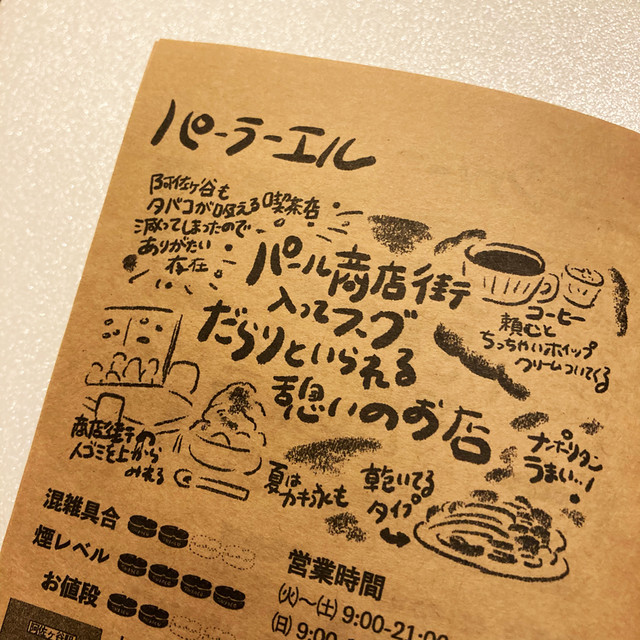 パーラーエル
阿佐ヶ谷も
タバコが吸える喫茶店
減ってしまったので
ありがたい
存在
パール商店街
入ってスグ
だらりといられる
憩いのお店
コーヒー
頼むと
ちっちゃいホイップ
クリームついてくる
商店街の
人ゴミを上から
みれる
夏は
カキ氷も
乾いてる
タイプ
ナポリタン
うまい…!
混雑具合
煙レベル
お値段
営業時間
(火)〜(土) 9:00-21:00
(日) 9:00